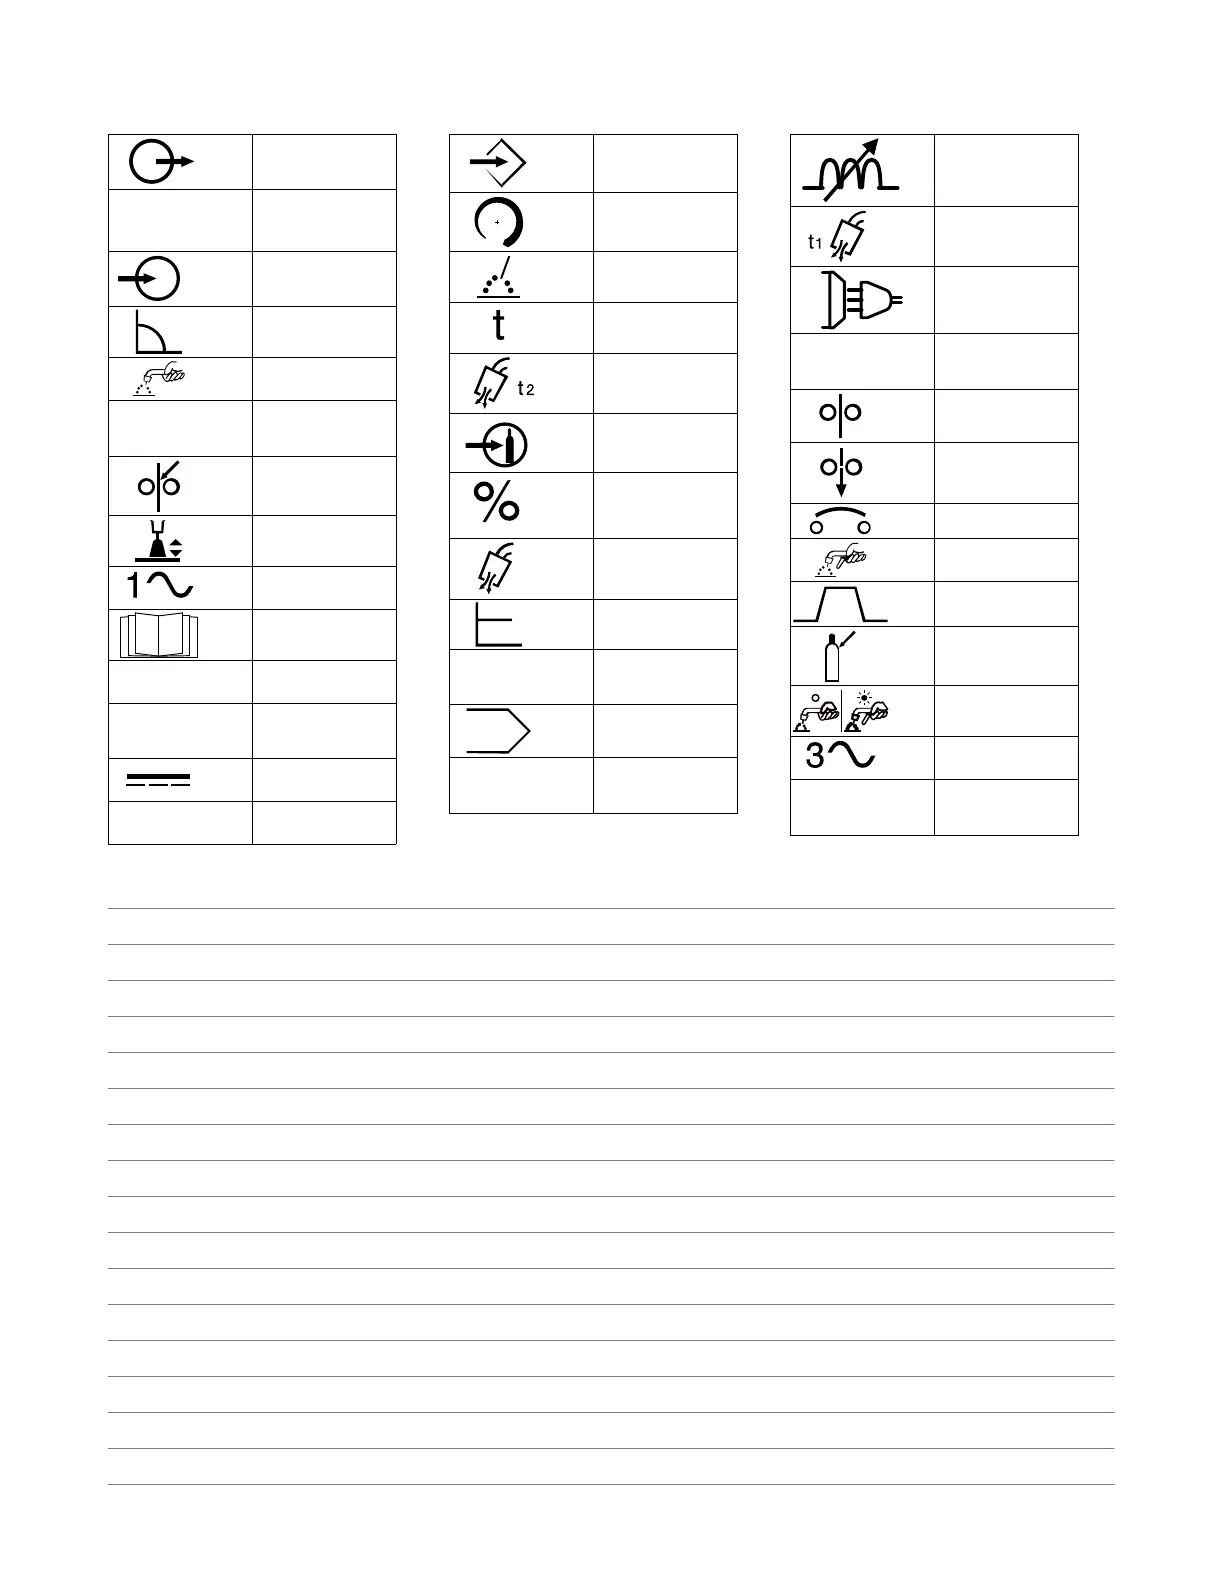 1
t
t2
%
t1
3